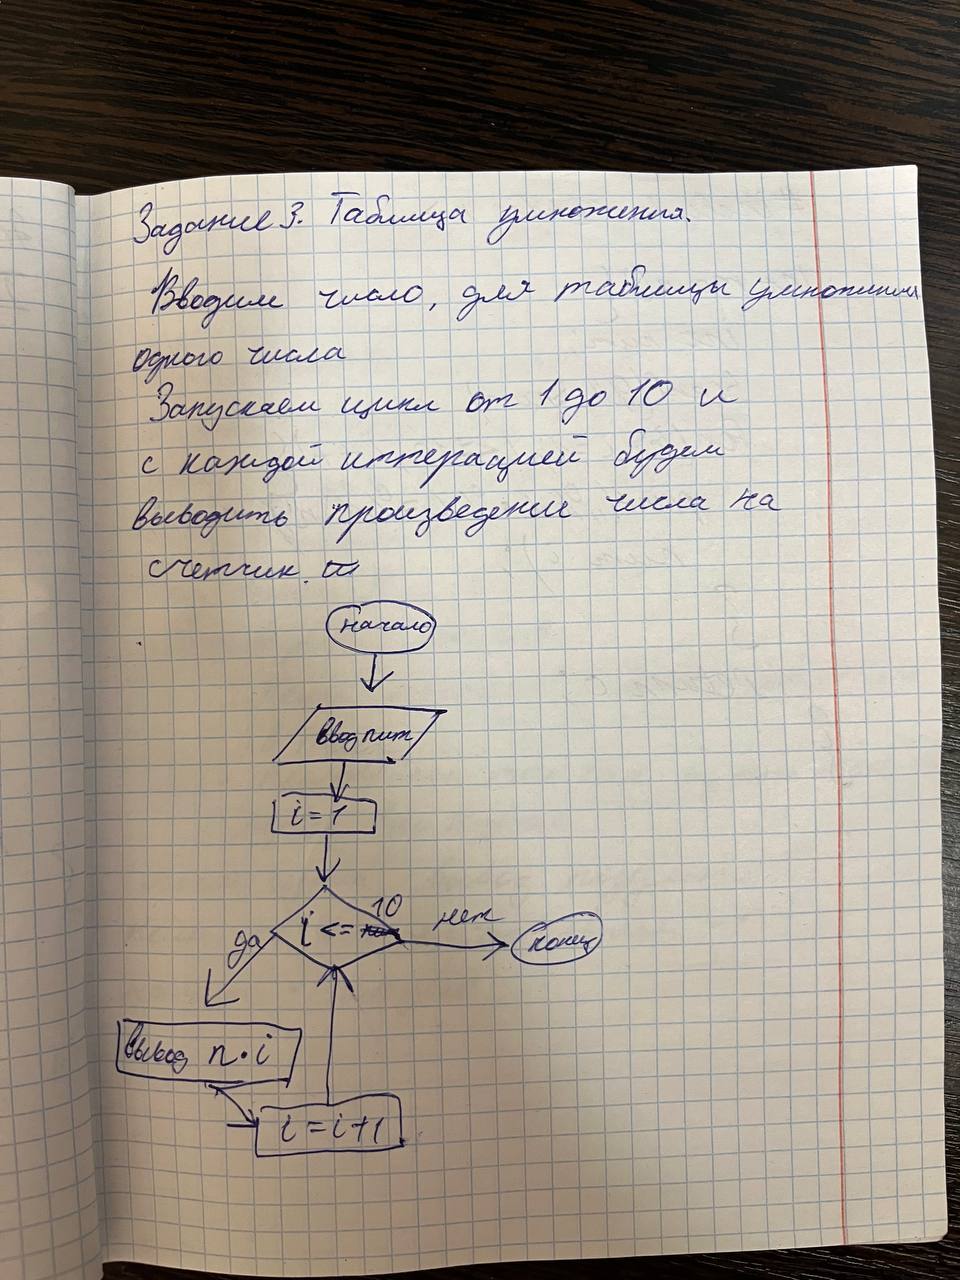 Задание 3. Таблица умножения.
Вводим число, для таблицы умножения
одного числа
Запускаем цикл от 1 до 10 и
с каждой иттерацией будем
выводить произведение числа на
счетчик.
начало
ввод
i = 1
10
i <=
нет
конец
да
вывод n · i
i = i + 1